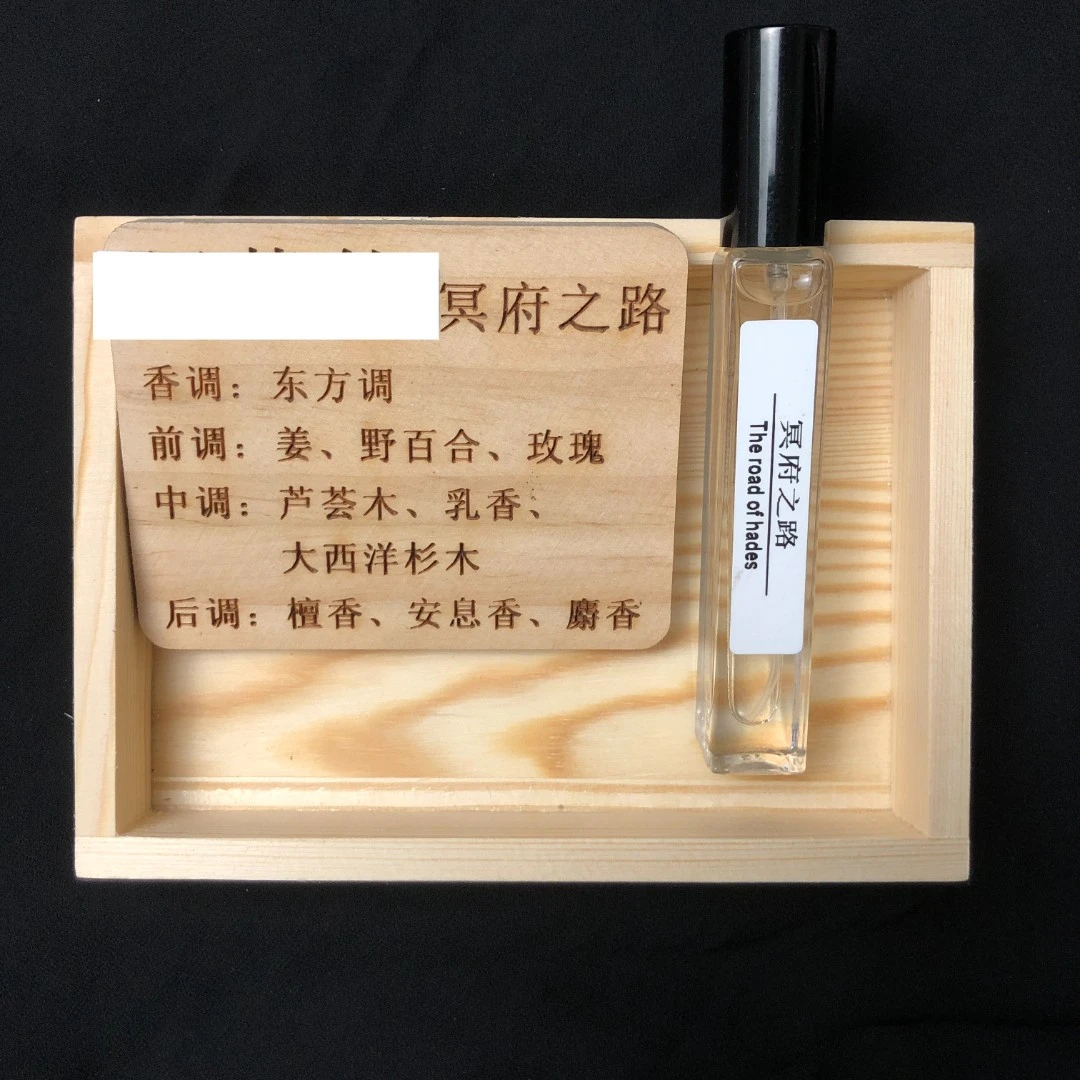 冥府之路
香调：东方调
前调：姜、野百合、玫瑰
中调：芦荟木、乳香、
大西洋杉木
后调：檀香、安息香、麝香
冥府之路
The road of hades